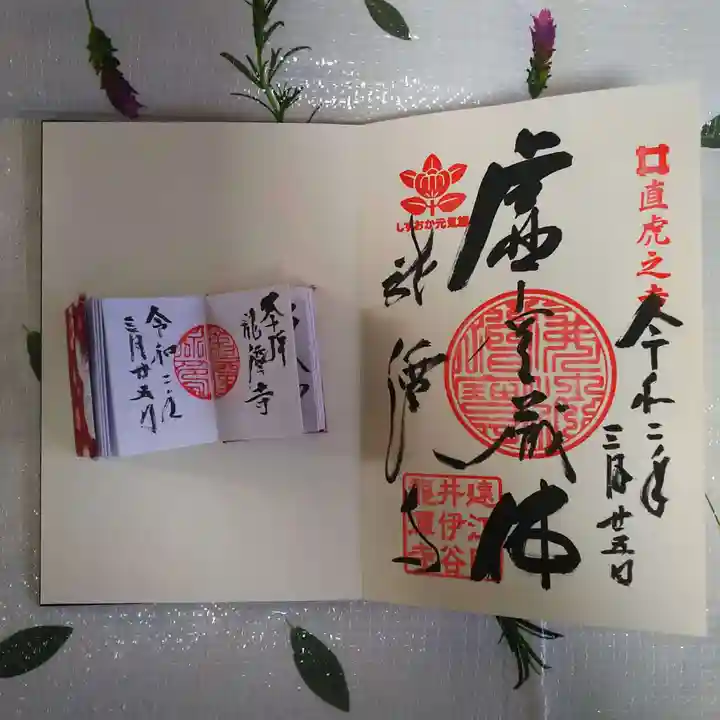 直虎之寺
令和二年
三月廿五日
虚空蔵佛
しずおか元気旅
龍潭寺
遠江国
井伊谷
龍潭寺
奉拝
龍潭寺
令和二年
三月廿五日